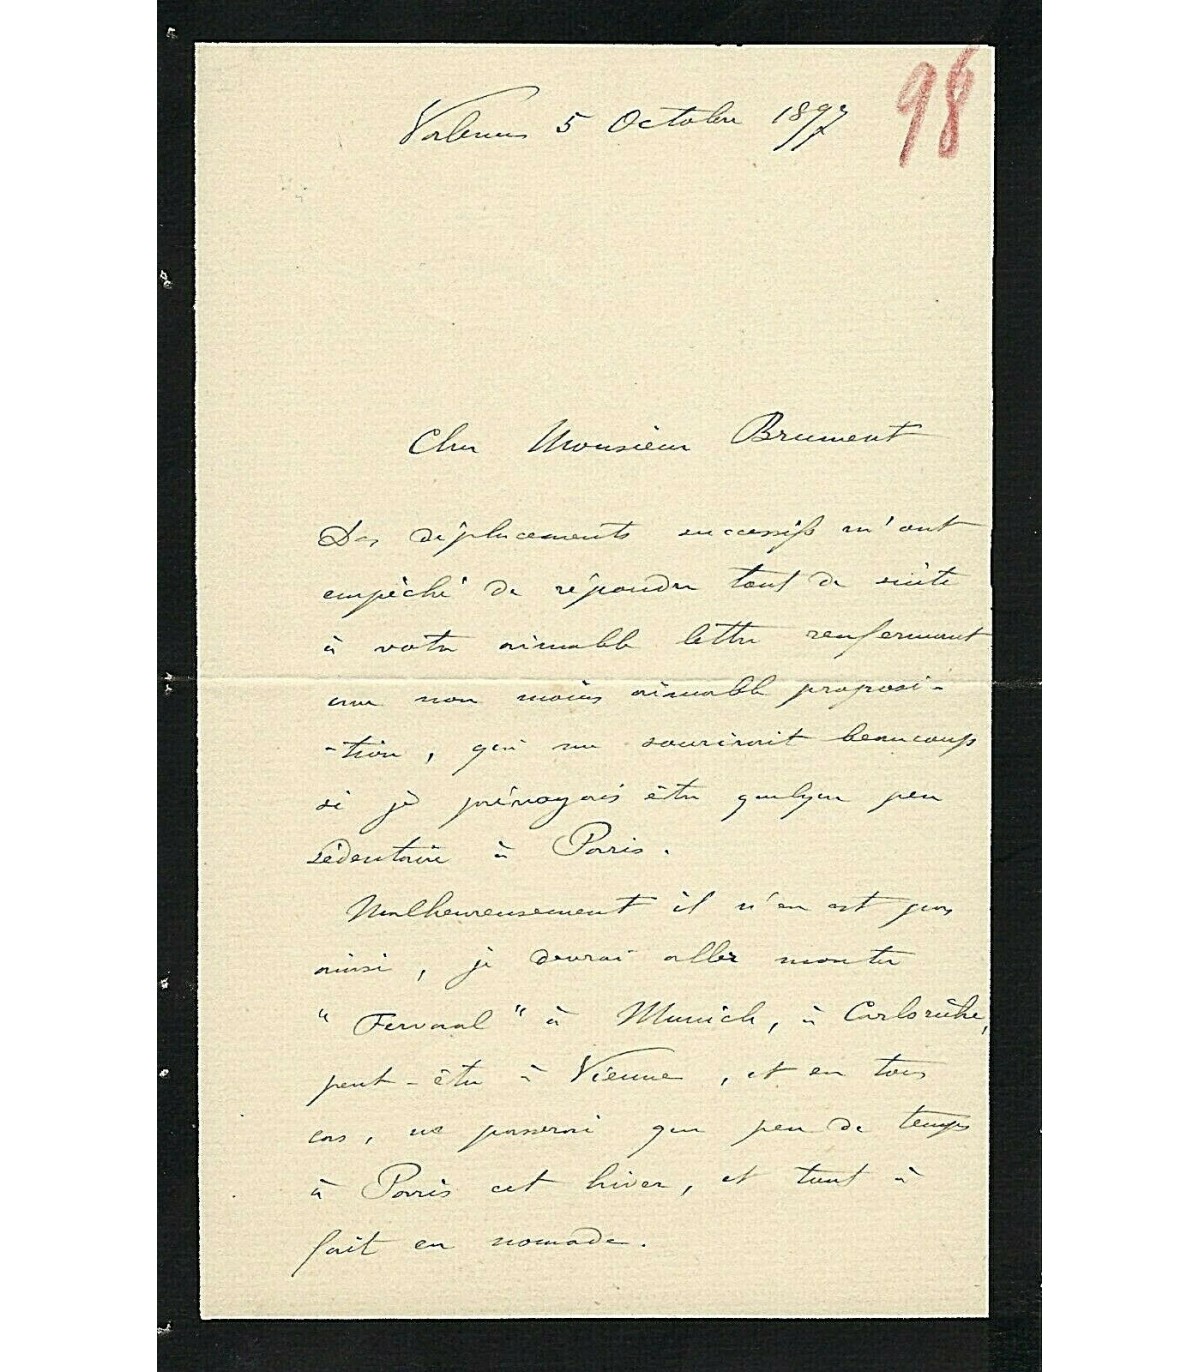 98
Valence 5 Octobre 1897
Cher Monsieur Brument
Des déplacements successifs m'ont
empêché de répondre tout de suite
à votre aimable lettre renfermant
une non moins aimable proposi-
-tion, qui me sourirait beaucoup
si je prévoyais être quelque peu
sédentaire à Paris.
Malheureusement il n'en est pas
ainsi, je devrai aller monter
"Fervaal" à Munich, à Carlsrühe,
peut-être à Vienne, et en tous
cas, ne passerai que peu de temps
à Paris cet hiver, et tout à
fait en nomade.